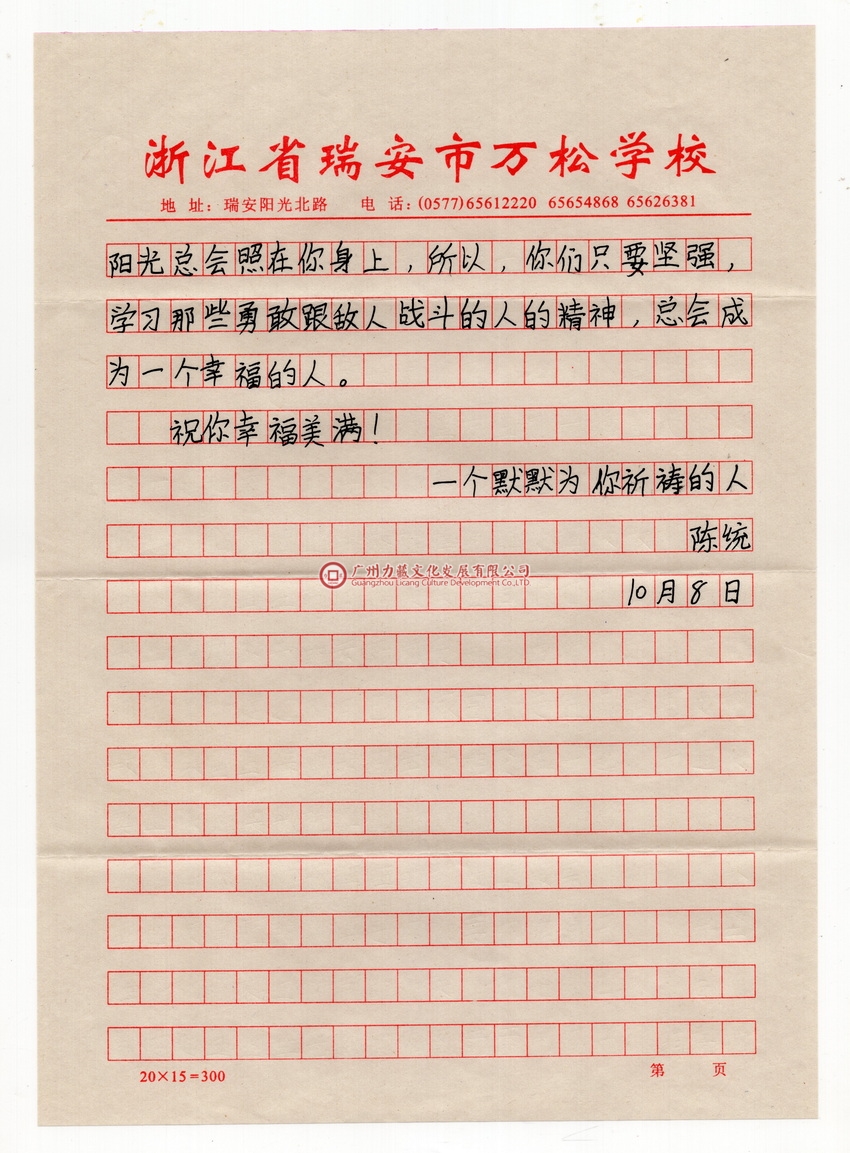 浙江省瑞安市万松学校
地 址：瑞安阳光北路 电 话：(0577)65612220 65654868 65626381
阳光总会照在你身上，所以，你们只要坚强，
学习那些勇敢跟敌人战斗的人的精神，总会成
为一个幸福的人。
祝你幸福美满！
一个默默为你祈祷的人
陈统
广州力藏文化发展有限公司
Guangzhou Licang Culture Development Co.,LTD
10月8日
20×15=300 第 页